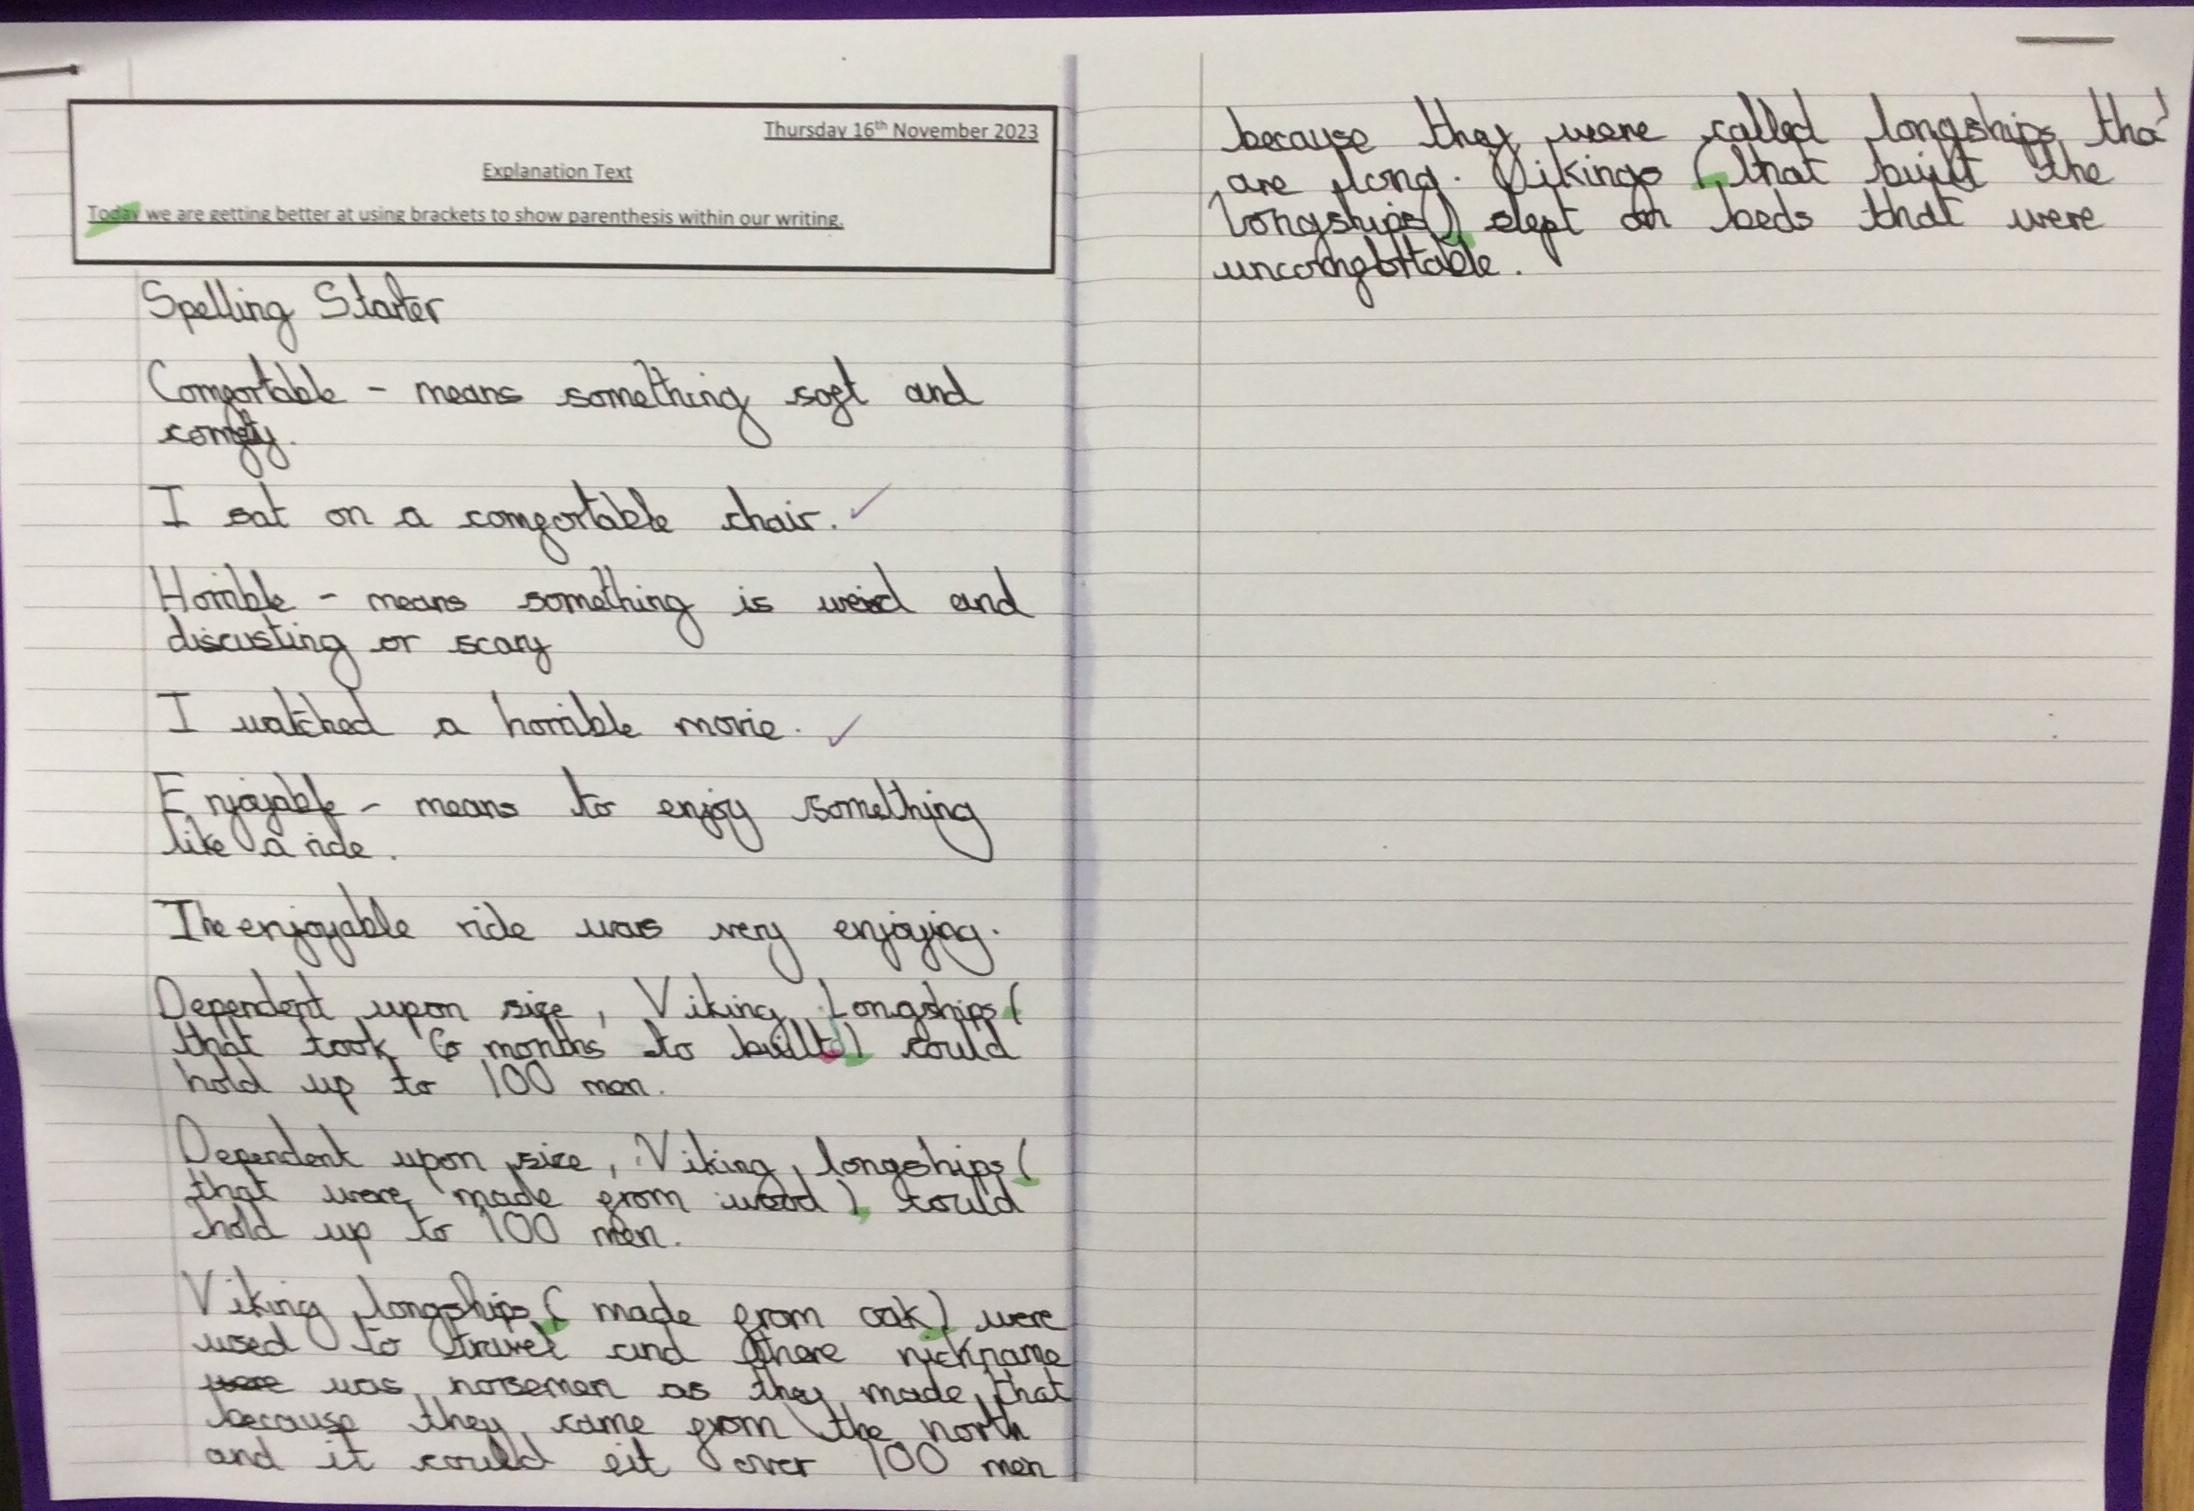 Thursday 16th November 2023
Explanation Text
Today we are getting better at using brackets to show parenthesis within our writing.
Spelling Starter
Comfortable - means something soft and
comfy.
I sat on a comfortable chair.
Horrible - means something is weird and
discusting or scary
I watched a horrible movie.
Enjoyable - means to enjoy something
like a ride.
The enjoyable ride was very enjoying.
Dependent upon size, Viking Longships (
that took 6 months to built) could
hold up to 100 men.
Dependent upon size, Viking longships (
that were made from wood) could
hold up to 100 men.
Viking longships ( made from oak) were
used to travel and there nickname
were was norsemen as they made that
because they came from the north
and it could fit over 100 men
because they were called longships that
are long. Vikings (that built the
longships) slept on beds that were
uncomfortable.